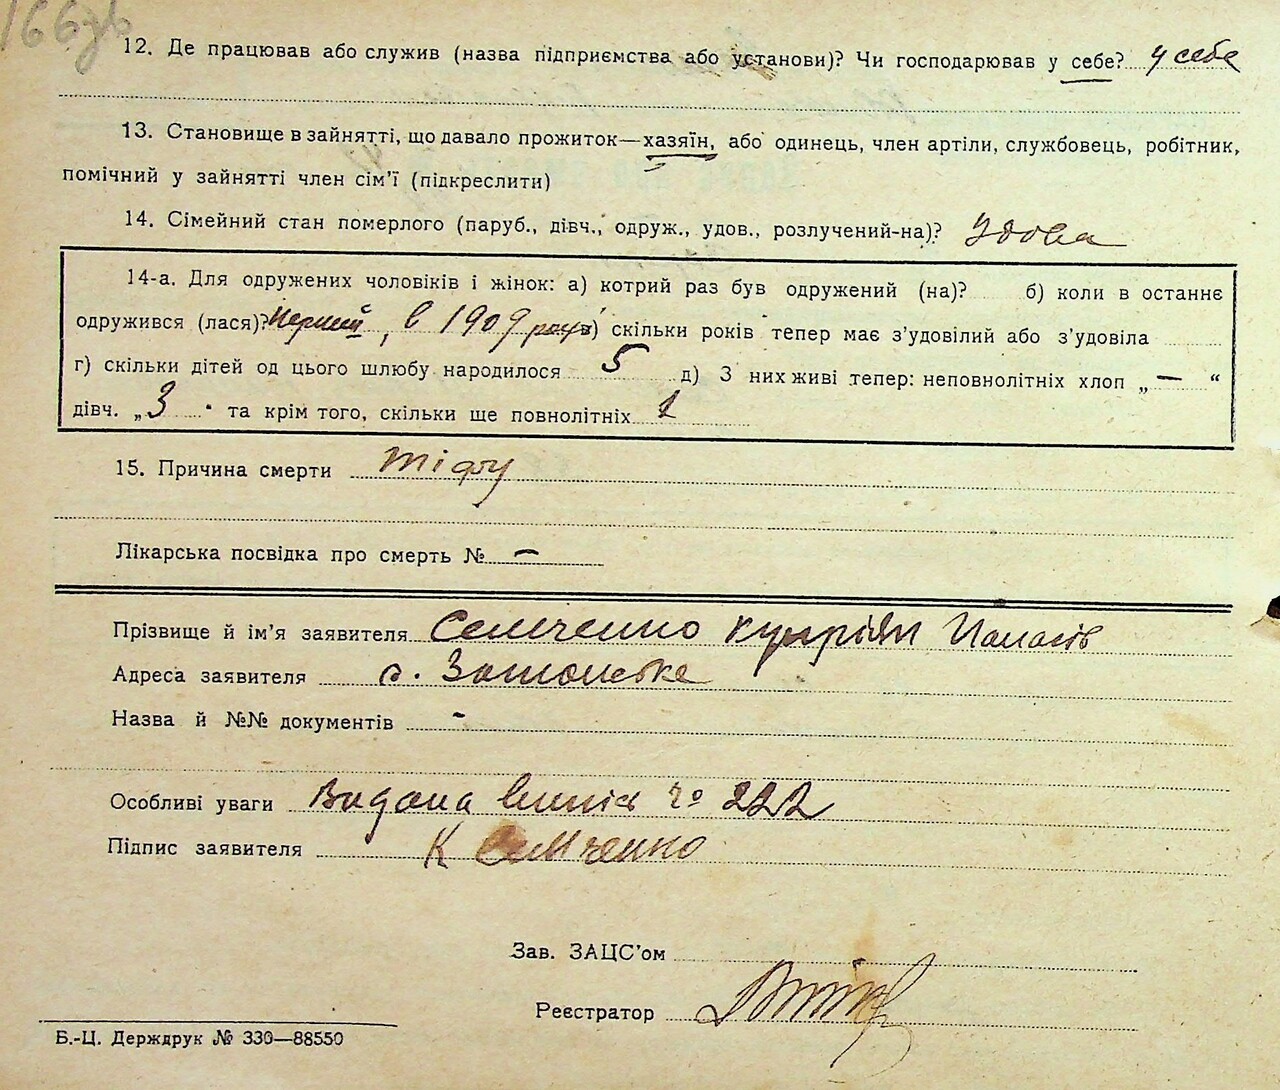 166зв
12. Де працював або служив (назва підприємства або установи)? Чи господарював у себе? у себе
13. Становище в зайнятті, що давало прожиток—хазяїн, або одинець, член артіли, службовець, робітник,
помічний у зайнятті член сім'ї (підкреслити)
14. Сімейний стан померлого (паруб., дівч., одруж., удов., розлучений-на)? Удова
14-а. Для одружених чоловіків і жінок: а) котрий раз був одружений (на)? б) коли в останнє
одружився (лася)? Перший, в 1909 році в) скільки років тепер має з'удовілий або з'удовіла
г) скільки дітей од цього шлюбу народилося 5 д) З них живі тепер: неповнолітніх хлоп „ — “
дівч. „ 3 . та крім того, скільки ще повнолітніх 1
15. Причина смерти тіфу
Лікарська посвідка про смерть № —
Прізвище й ім'я заявителя Семченко Купріян Панасів
Адреса заявителя с.
Назва й №№ документів -
Особливі уваги Видана випис № 222
Підпис заявителя К Семченко
Зав. ЗАЦС'ом
Реєстратор
Б.-Ц. Держдрук № 330—88550